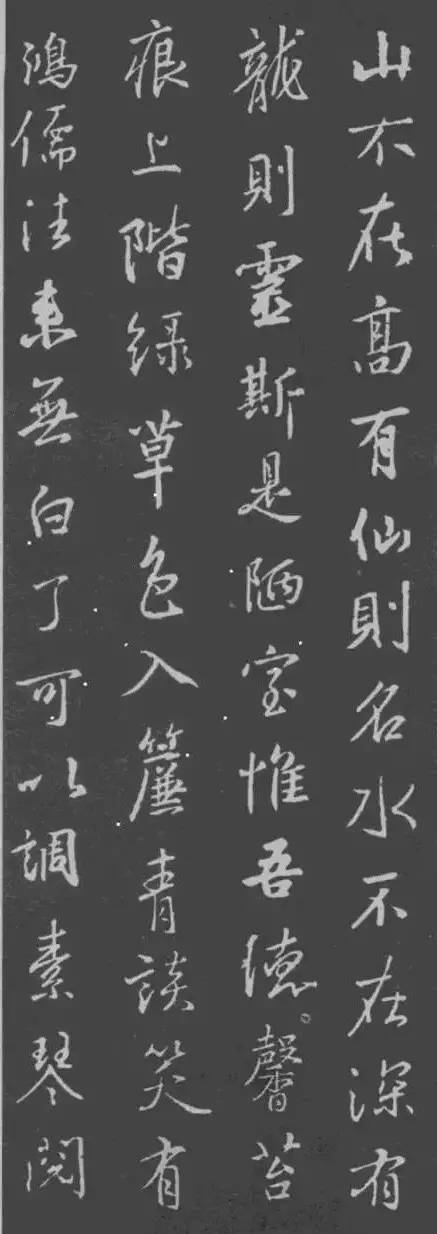 山不在高有仙則名水不在深有
龍則靈斯是陋室惟吾德馨苔
痕上階綠草色入簾青談笑有
鴻儒往来無白丁可以調素琴閱